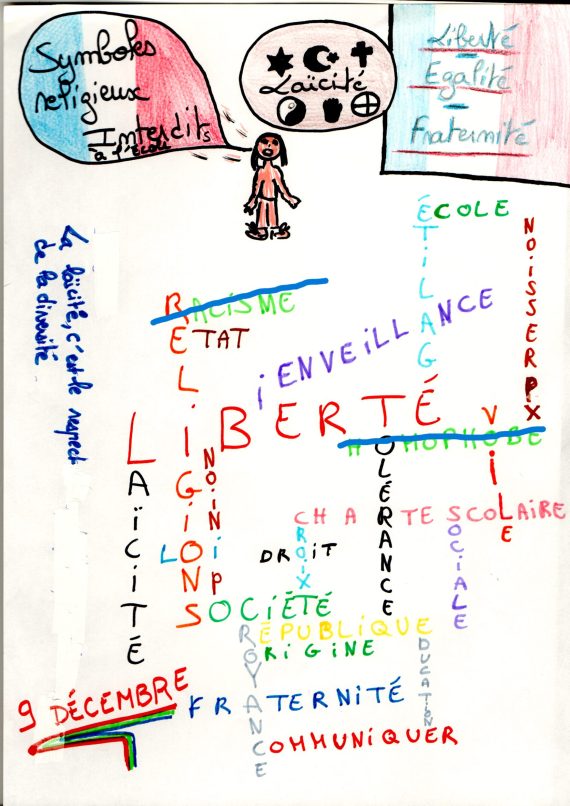 Symboles
religieux
Interdits
à l'Ecole
Laïcité
Liberté
Egalité
Fraternité
La laïcité, c'est le respect
de la diversité
ÉCOLE
ÉTILAGÉ
NOISSERPX
RACISME
ETAT
RELIGIONS
iENVEiLLANCE
LIBERTÉ
ViLE
HOMOPHOBE
LAÏCITÉ
NOiNiP
TOLÉRANCE
CHARTE SCOLAIRE
LOi
DROiT
CROiX
SOCiALE
SOCIÉTÉ
RÉPUBLIQUE
ORiGiNE
CROYANCE
ÉDUCATION
9 DÉCEMBRE
FRATERNITÉ
COMMUNiQUER